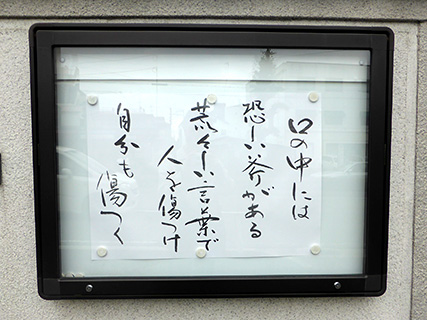 口の中には
恐しい斧がある
荒々しい言葉で
人を傷つけ
自分も傷つく